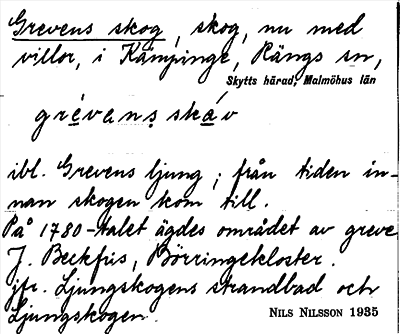 Grevens skog, skog, nu med
villor, i Kämpinge, Rängs sn,
Skytts härad, Malmöhus län
grévans skáv
ibl. Grevens ljung; från tiden in-
nan skogen kom till.
På 1780-talet ägdes området av greve
J. Beckfris, Börringekloster.
jfr. Ljungskogens strandbad och
Ljungskogen.
NILS NILSSON 1935